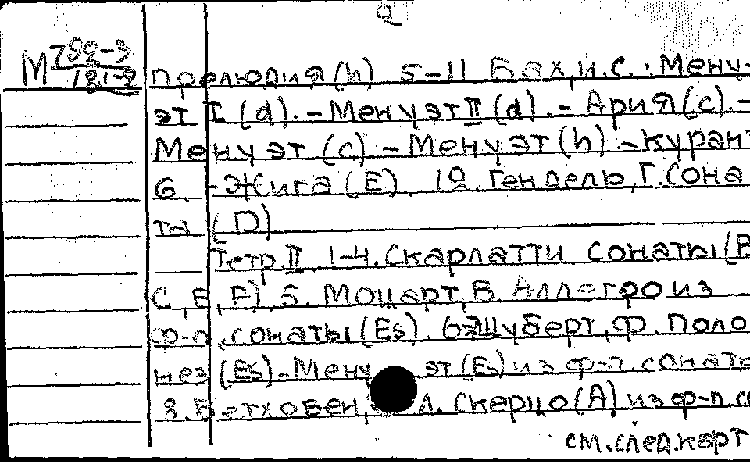 2
М 759-3
181-2
прелюдия (h) 5-11 Бах, И.С. : Мену-
эт I (d). – Менуэт II (d). – Ария (c) –
Менуэт (c) – Менуэт (h) – Курант
G. – Жига (E). 12. Генделю, Г. Сона
ты (D)
Тетр. II. 1-4. Скарлатти Сонаты (B
C, E, F). 5. Моцарт, В. Аллегро из
ф-п. сонаты (Es). 6-7. Шуберт, Ф. Поло
нез (Es). – Менуэт (Es) из ф-п. соната
8. Бетховен, Л. Скерцо (A) из ф-п. со
см. след. карт